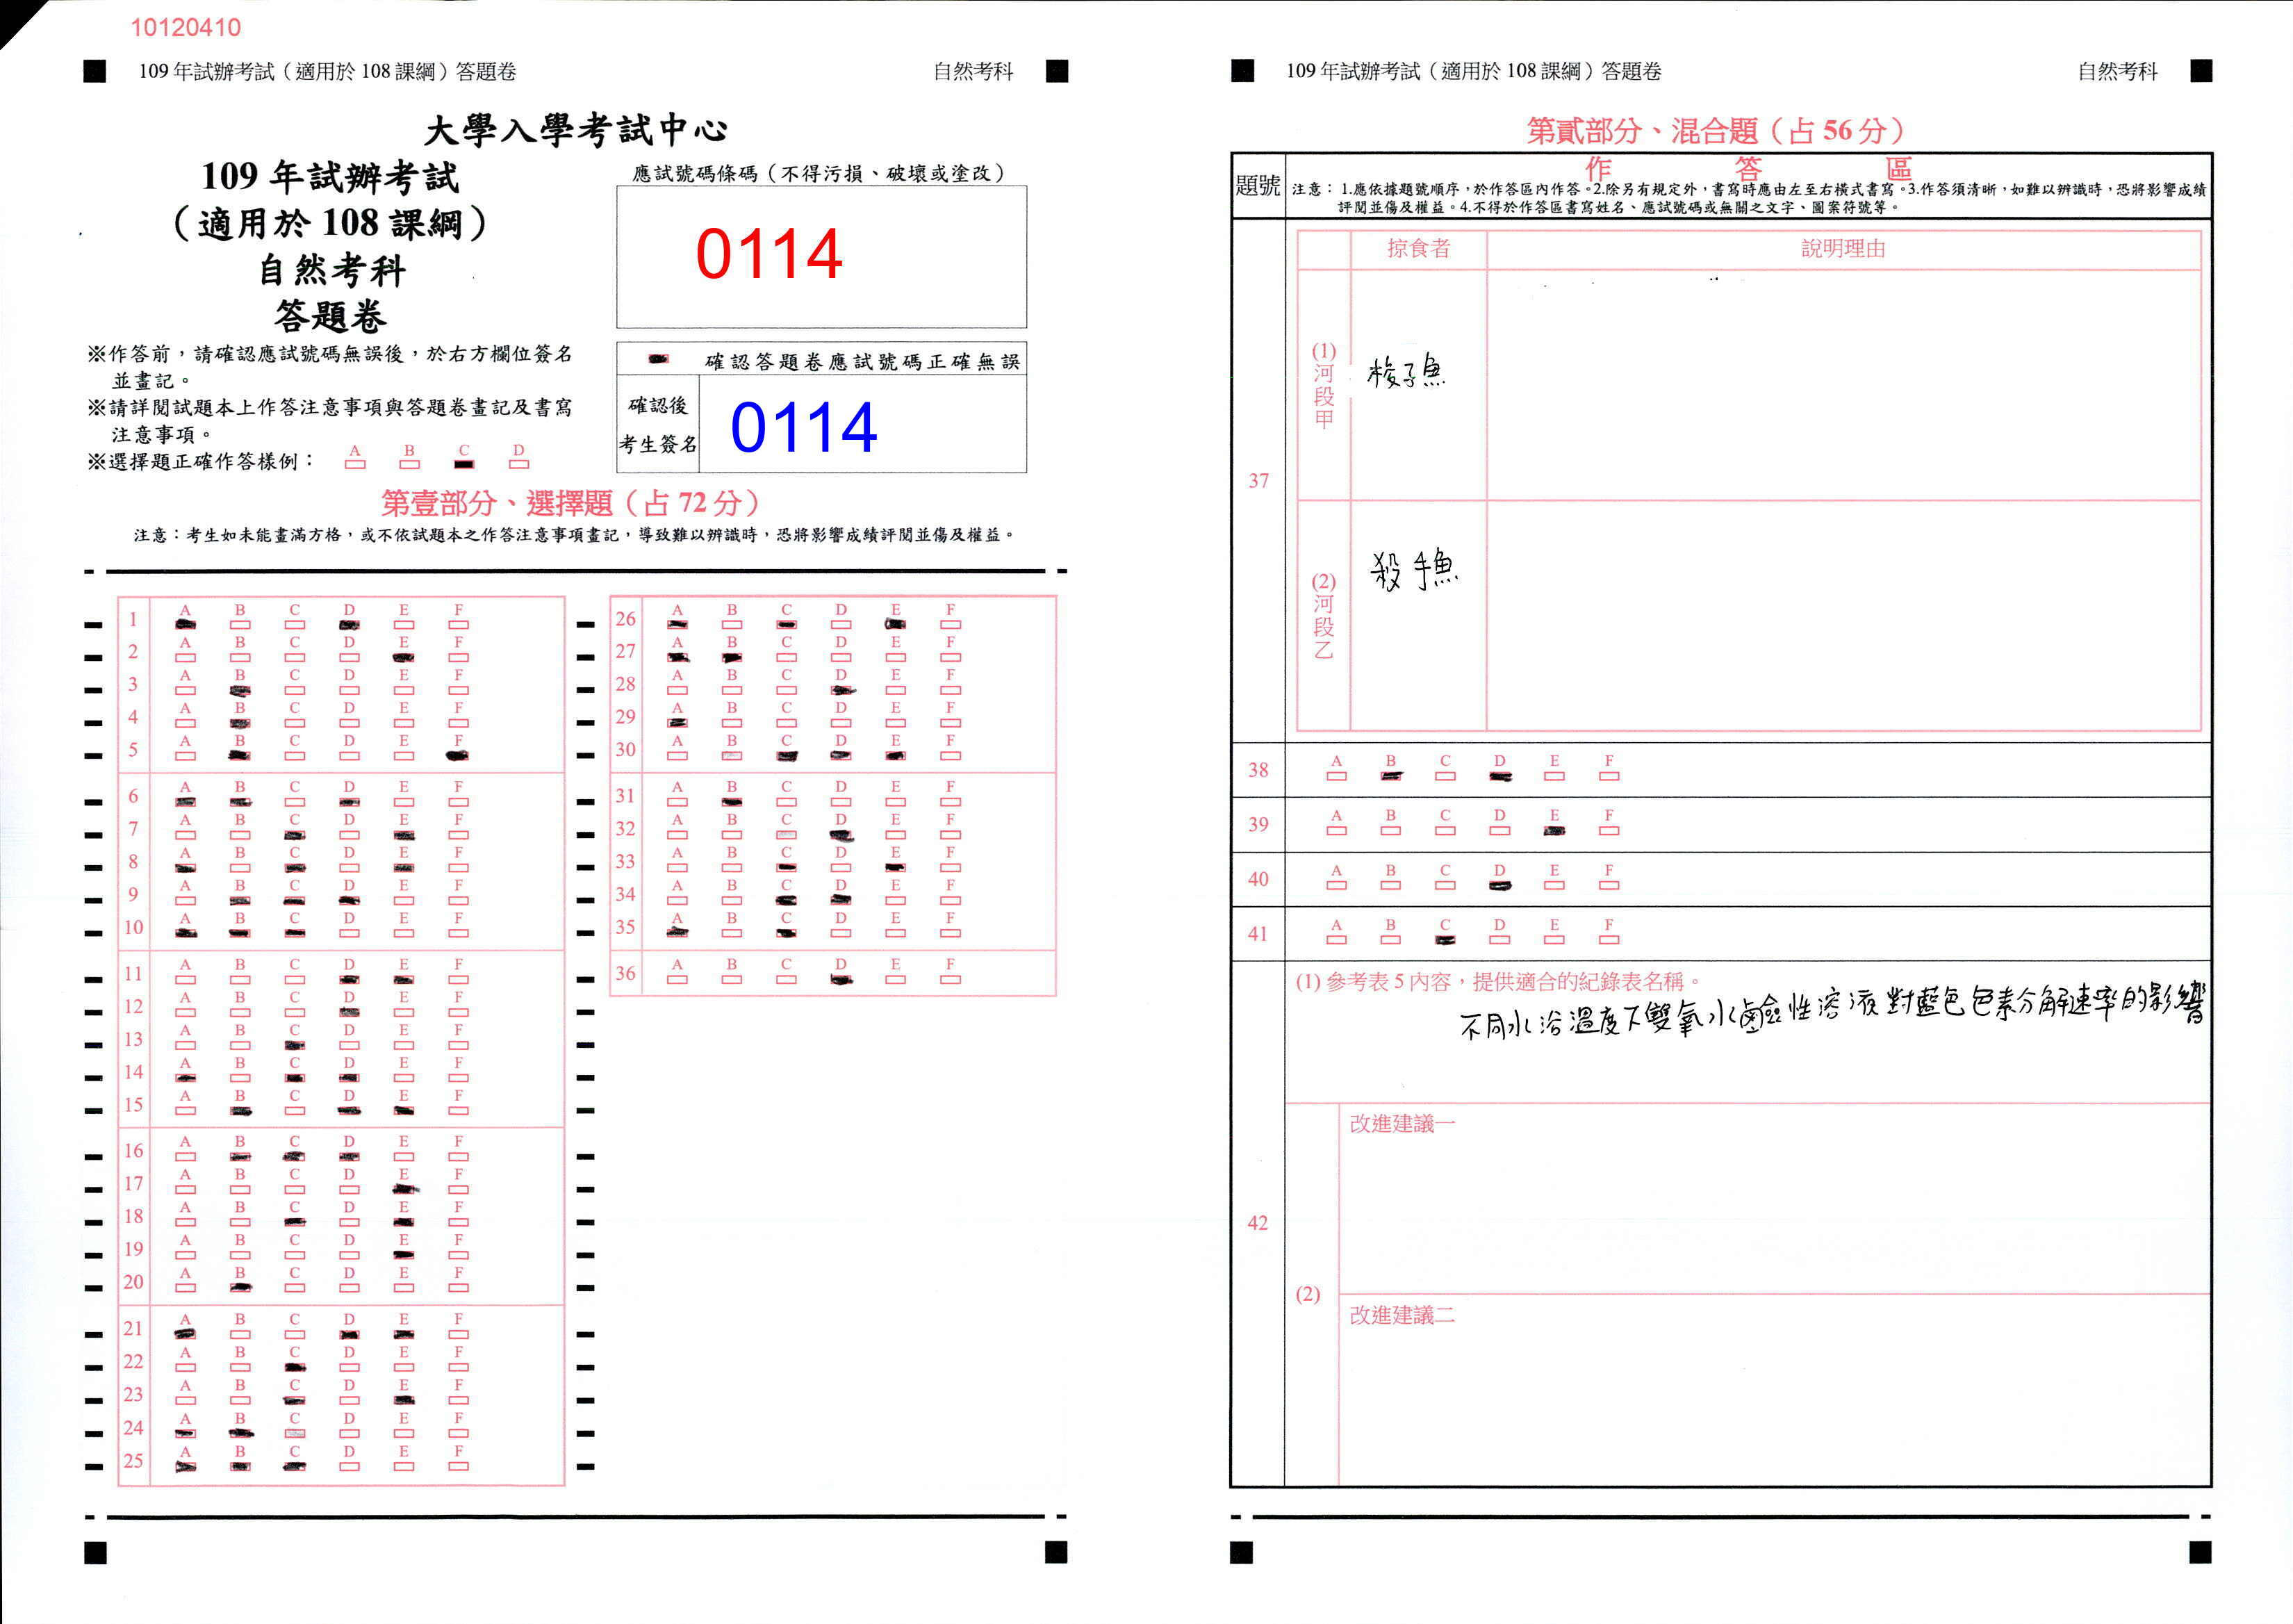 10120410
109 年試辦考試（適用於 108 課綱）答題卷 自然考科
大學入學考試中心
109 年試辦考試
（適用於 108 課綱）
自然考科
答題卷
應試號碼條碼（不得污損、破壞或塗改）
0114
確認答題卷應試號碼正確無誤
確認後
考生簽名
0114
※作答前，請確認應試號碼無誤後，於右方欄位簽名
並畫記。
※請詳閱試題本上作答注意事項與答題卷畫記及書寫
注意事項。
※選擇題正確作答樣例：
A B C D
第壹部分、選擇題（占 72 分）
注意：考生如未能畫滿方格，或不依試題本之作答注意事項畫記，導致難以辨識時，恐將影響成績評閱並傷及權益。
1 A B C D E F
2 A B C D E F
3 A B C D E F
4 A B C D E F
5 A B C D E F
6 A B C D E F
7 A B C D E F
8 A B C D E F
9 A B C D E F
10 A B C D E F
11 A B C D E F
12 A B C D E F
13 A B C D E F
14 A B C D E F
15 A B C D E F
16 A B C D E F
17 A B C D E F
18 A B C D E F
19 A B C D E F
20 A B C D E F
21 A B C D E F
22 A B C D E F
23 A B C D E F
24 A B C D E F
25 A B C D E F
26 A B C D E F
27 A B C D E F
28 A B C D E F
29 A B C D E F
30 A B C D E F
31 A B C D E F
32 A B C D E F
33 A B C D E F
34 A B C D E F
35 A B C D E F
36 A B C D E F
109 年試辦考試（適用於 108 課綱）答題卷 自然考科
第貳部分、混合題（占 56 分）
題號
作 答 區
注意：1.應依據題號順序，於作答區內作答。2.除另有規定外，書寫時應由左至右橫式書寫。3.作答須清晰，如難以辨識時，恐將影響成績
評閱並傷及權益。4.不得於作答區書寫姓名、應試號碼或無關之文字、圖案符號等。
37
掠食者 說明理由
(1)河段甲
梭子魚
(2)河段乙
殺手魚
38 A B C D E F
39 A B C D E F
40 A B C D E F
41 A B C D E F
42
(1) 參考表 5 內容，提供適合的紀錄表名稱。
不同水浴溫度下雙氧水鹼性溶液對藍色色素分解速率的影響
(2)
改進建議一
改進建議二